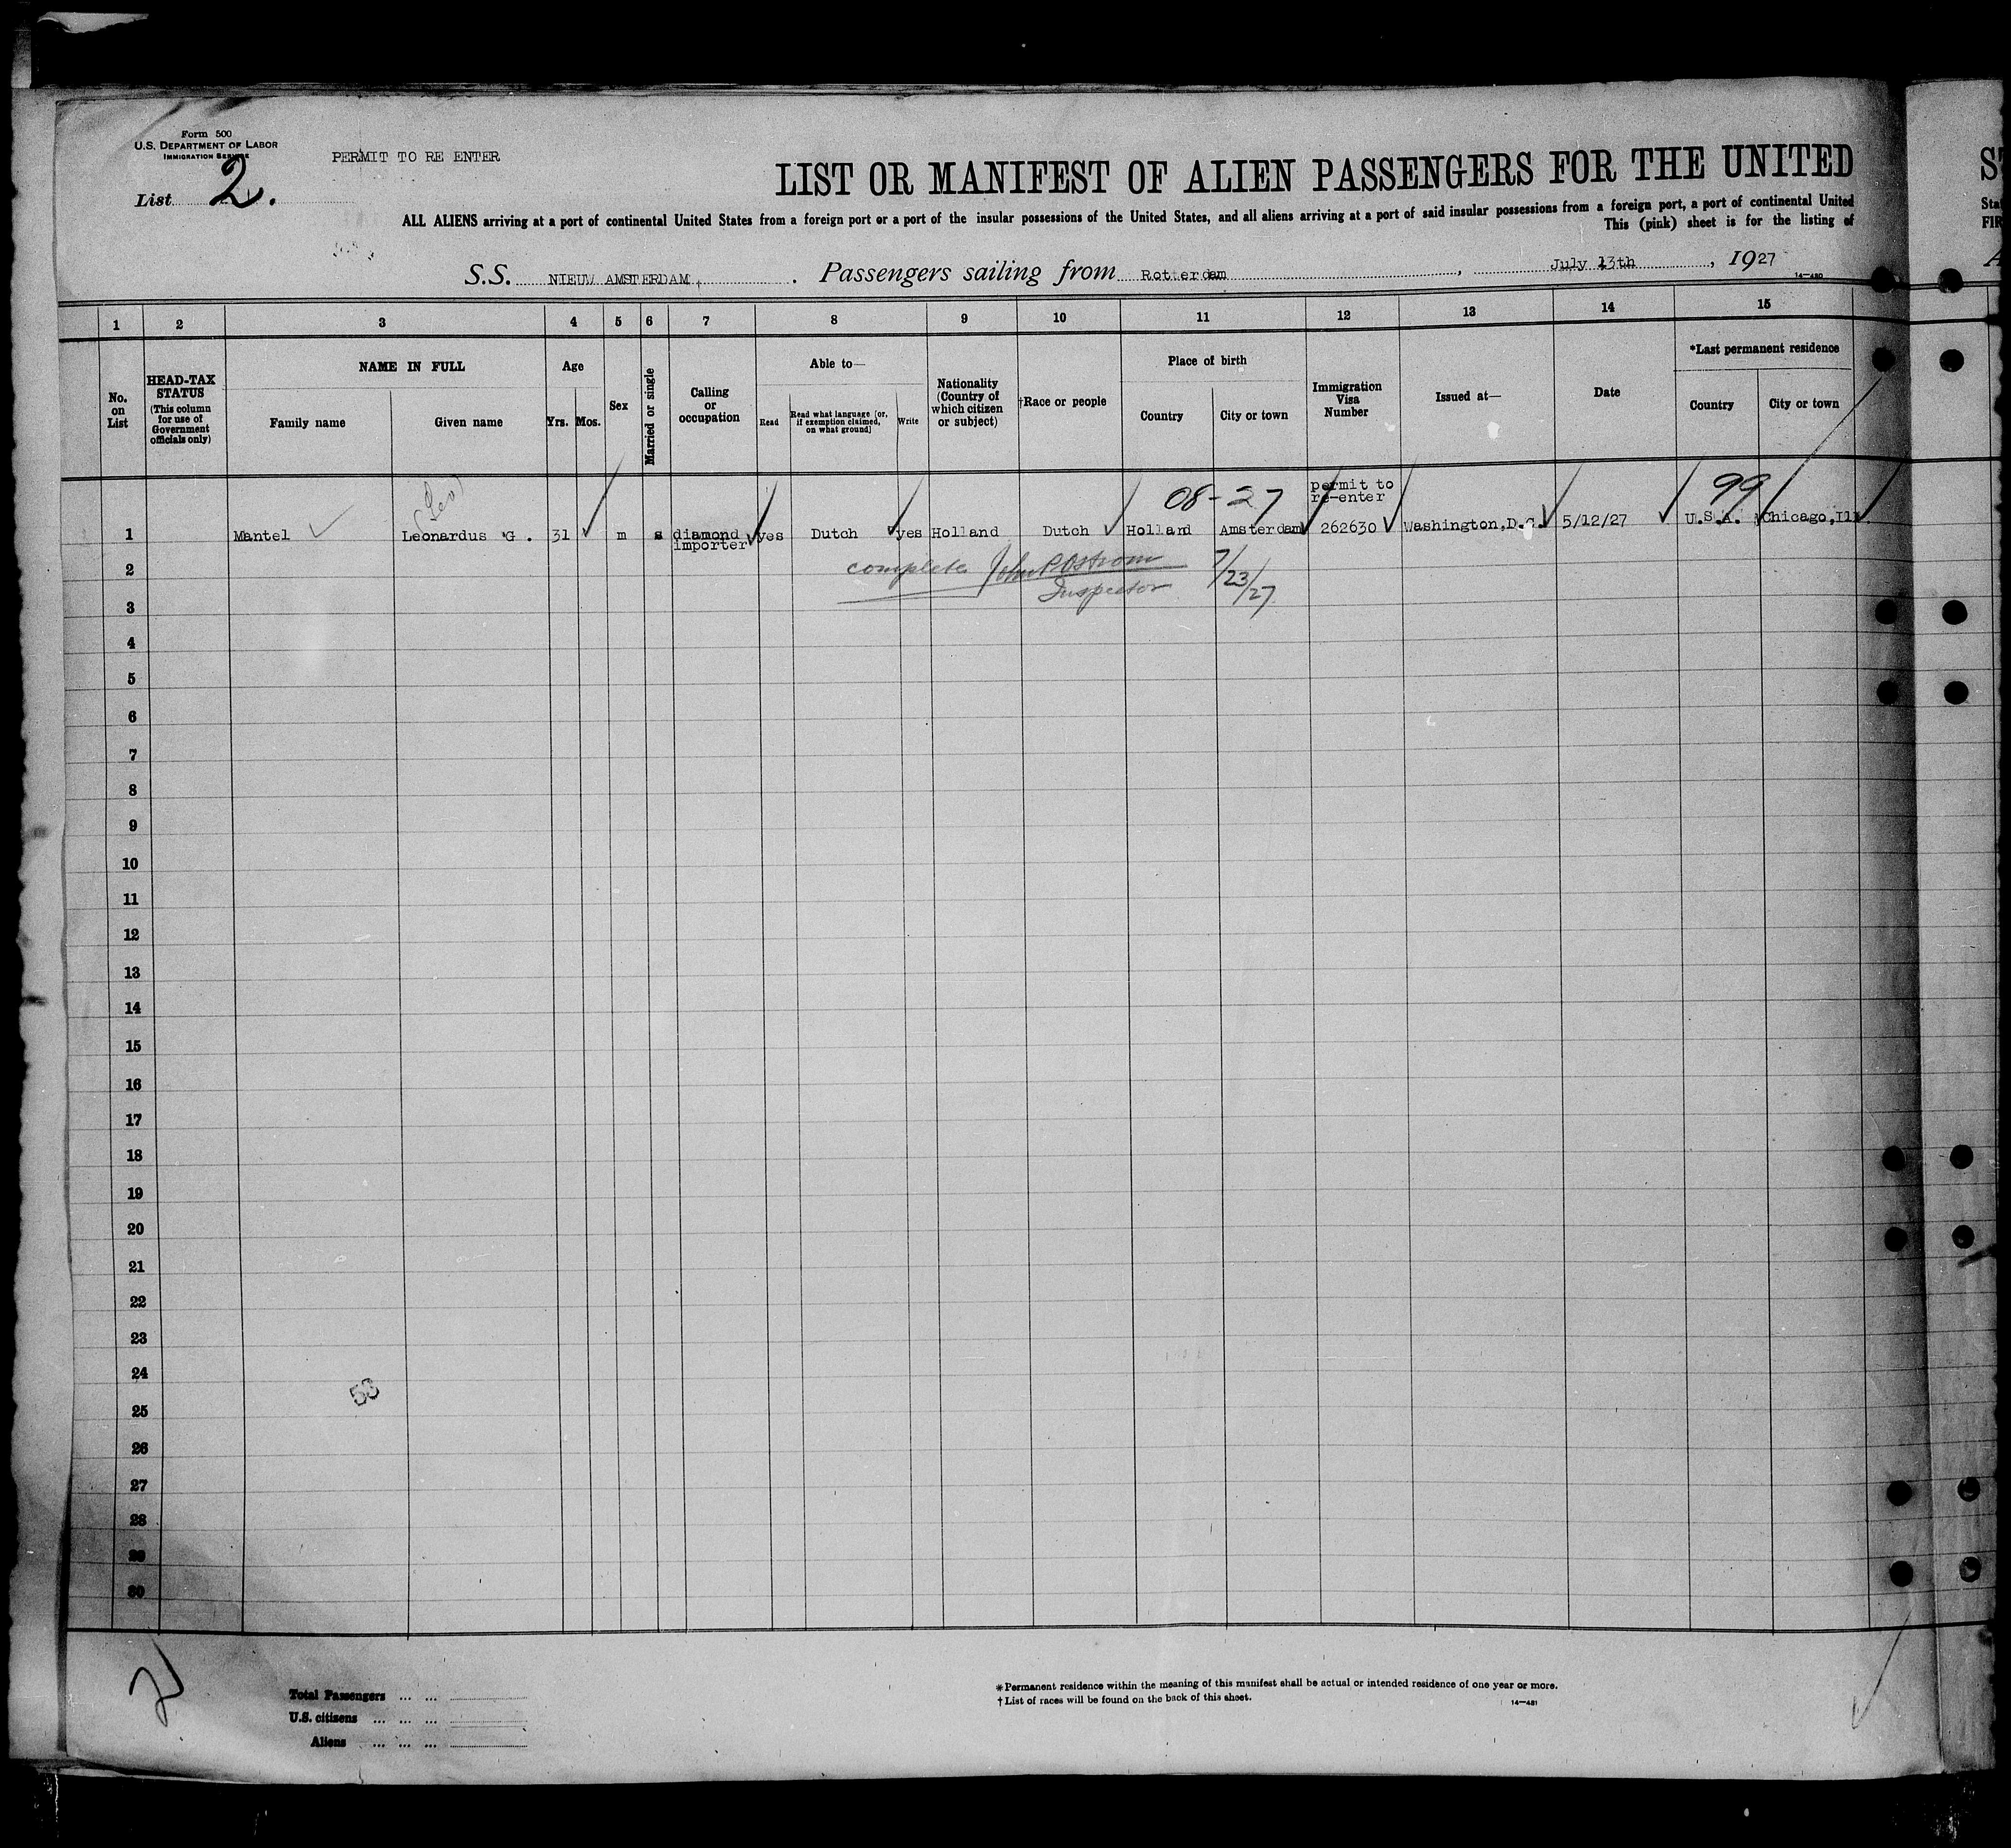 Form 500
U.S. DEPARTMENT OF LABOR
IMMIGRATION SERVICE
PERMIT TO RE ENTER
List 2.
LIST OR MANIFEST OF ALIEN PASSENGERS FOR THE UNITED
ST
ALL ALIENS arriving at a port of continental United States from a foreign port or a port of the insular possessions of the United States, and all aliens arriving at a port of said insular possessions from a foreign port, a port of continental United
Sta
This (pink) sheet is for the listing of
FIR
S.S. NIEUW AMSTERDAM, . Passengers sailing from Rotterdam, July 13th, 1927
A
14—480
1 2 3 4 5 6 7 8 9 10 11 12 13 14 15
No. on List
HEAD-TAX STATUS
(This column for use of Government officials only)
NAME IN FULL
Family name
Given name
Age
Yrs.
Mos.
Sex
Married or single
Calling or occupation
Able to—
Read
Read what language [or, if exemption claimed, on what ground]
Write
Nationality (Country of which citizen or subject)
†Race or people
Place of birth
Country
City or town
Immigration Visa Number
Issued at—
Date
*Last permanent residence
Country
City or town
(Leo)
08-27
permit to
re-enter
99
1 Mantel Leonardus G. 31 m s diamond importer yes Dutch yes Holland Dutch Holland Amsterdam 262630 Washington,D.C. 5/12/27 U.S.A. Chicago,Ill.
2 complete John P. Ostrom 7/23/27
Inspector
3
4
5
6
7
8
9
10
11
12
13
14
15
16
17
18
19
20
21
22
23
24
53
25
26
27
28
29
30
2
Total Passengers ... ...
U.S. citizens ... ... ...
Aliens ... ... ...
*Permanent residence within the meaning of this manifest shall be actual or intended residence of one year or more.
†List of races will be found on the back of this sheet.
14—481